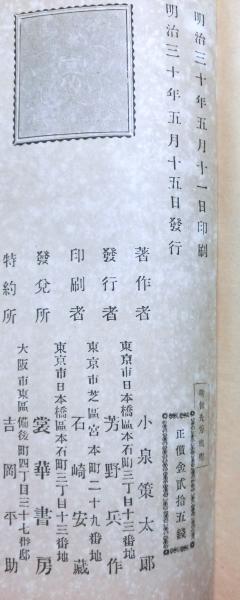 明治三十年五月十一日印刷
明治三十年五月十五日發行
正價金貳拾五錢
著作者 小泉策太郎
東京市日本橋區本石町三丁目十三番地
發行者 芳野兵作
東京市芝區宮本町二十九番地
印刷者 石崎安藏
東京市日本橋區本石町三丁目十三番地
發兌所 裳華書房
大阪市東區備後町四丁目三十七番邸
特約所 吉岡平助